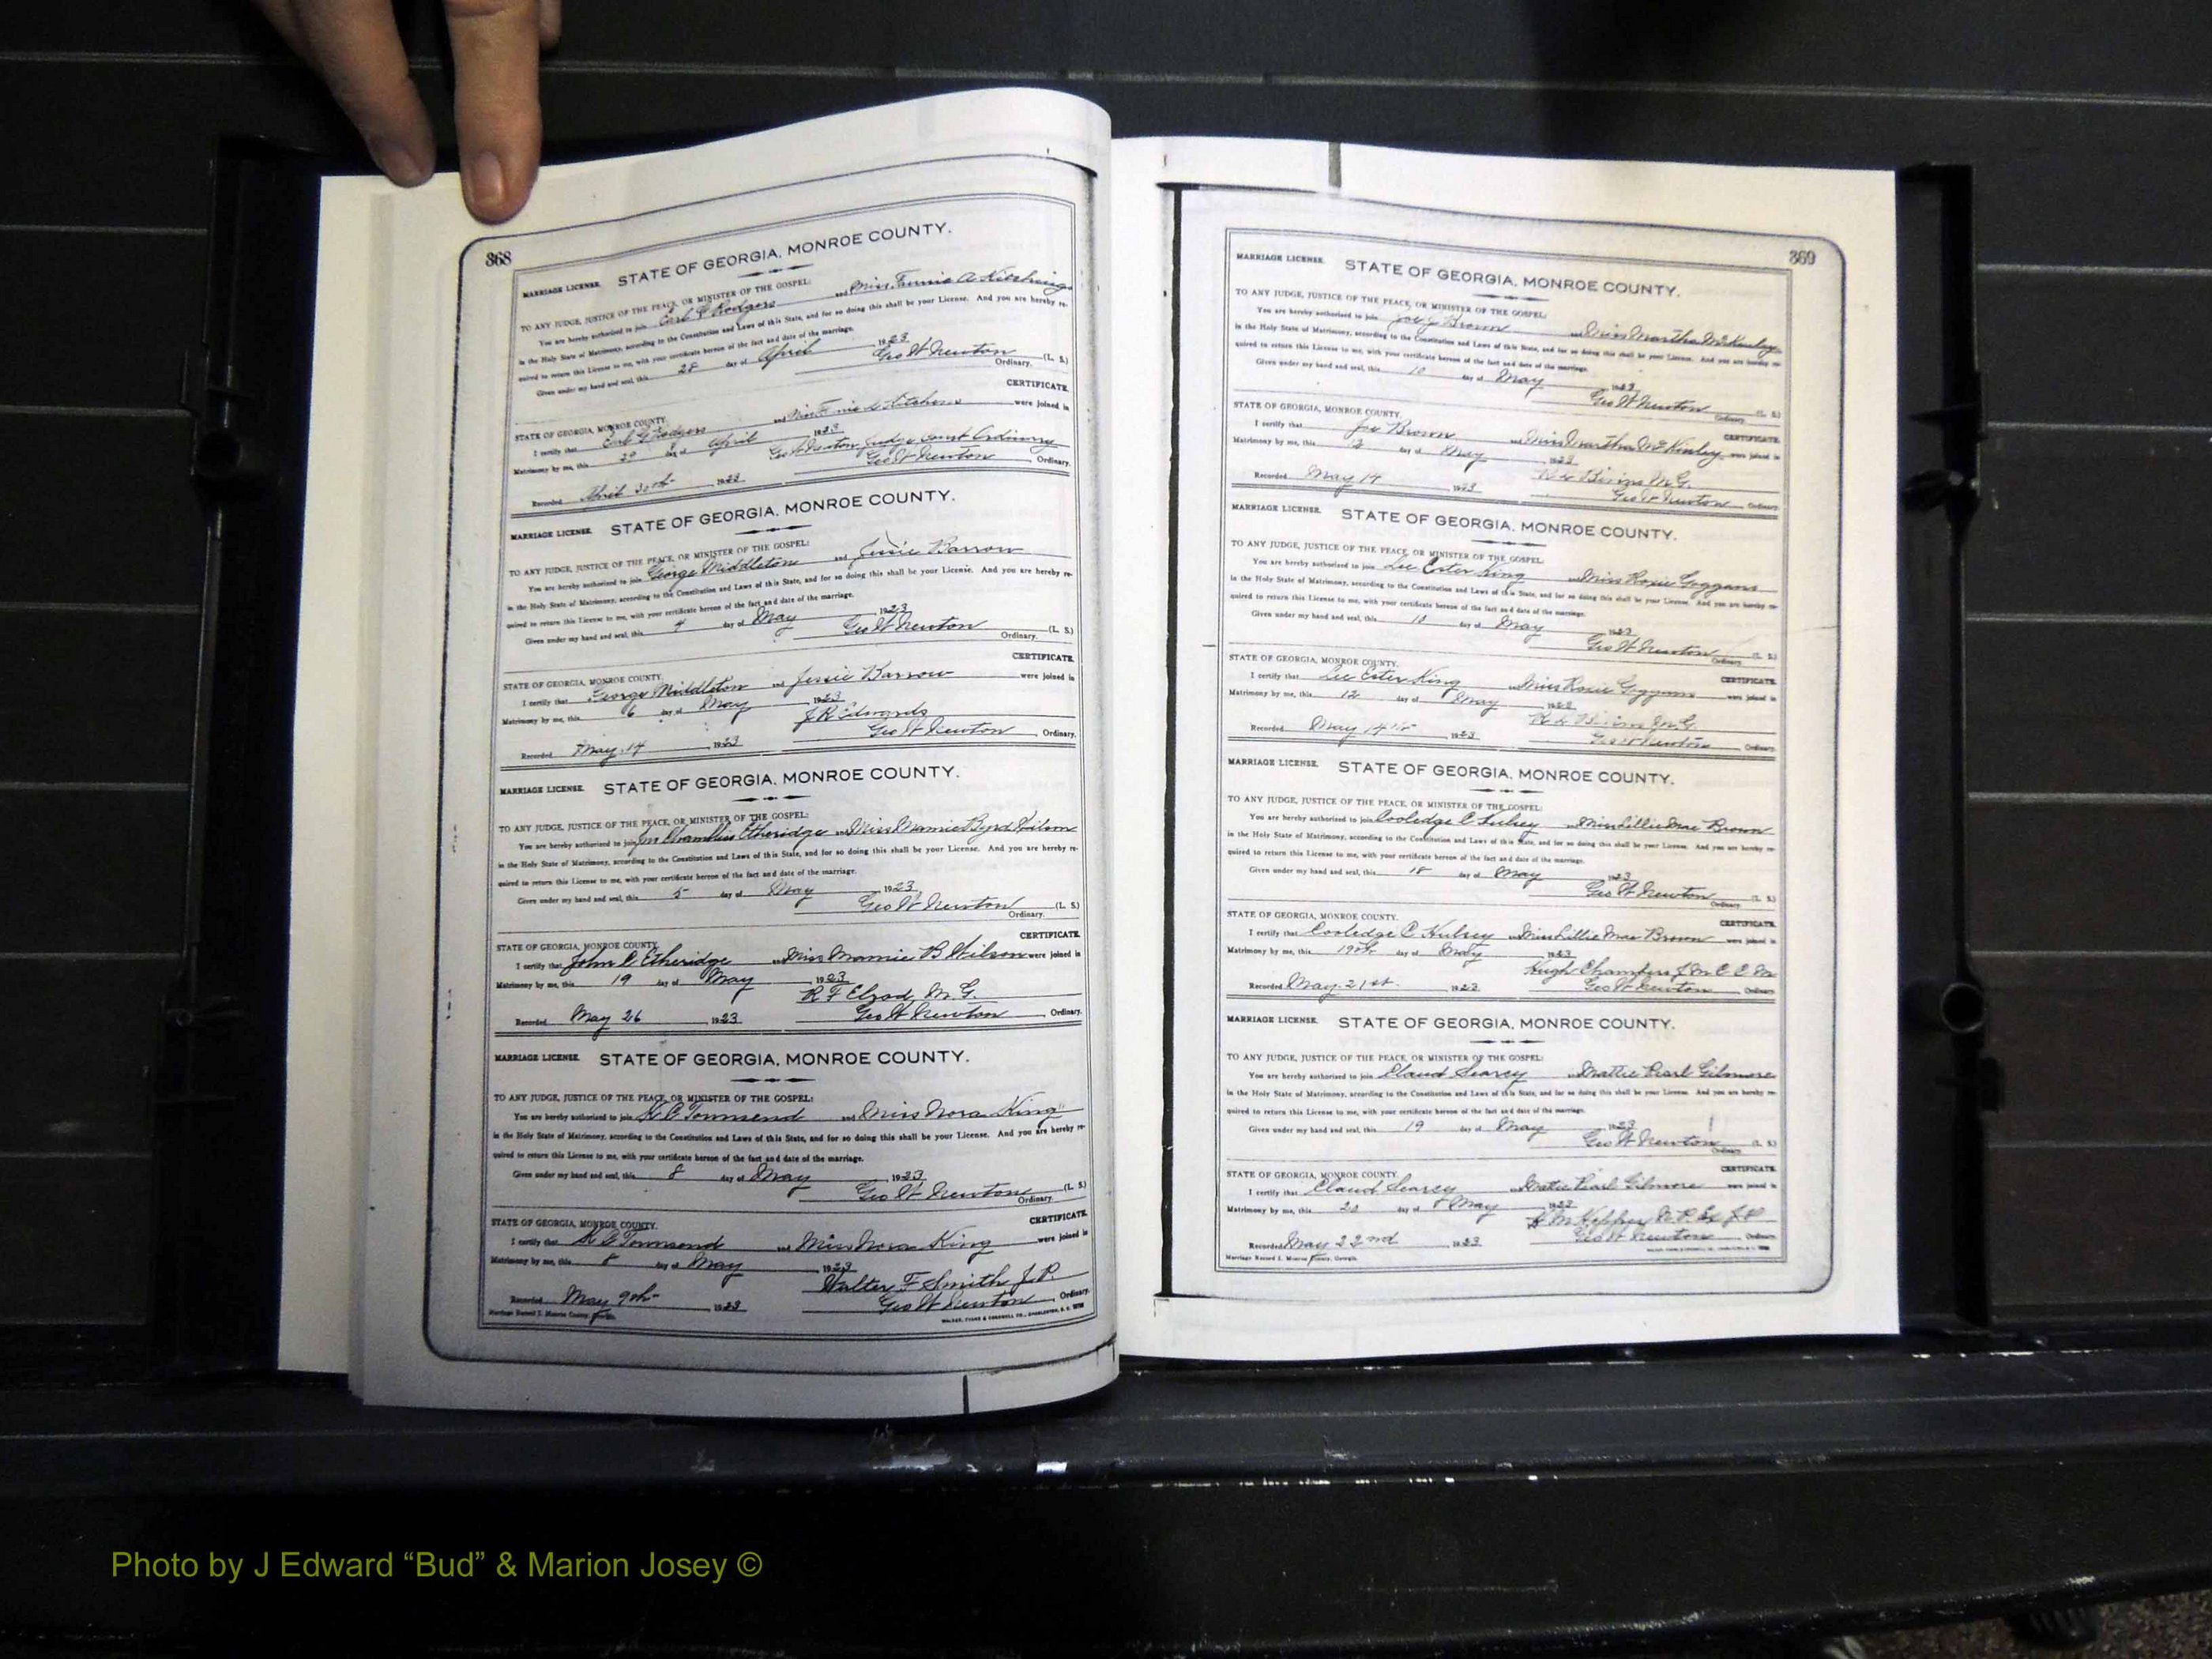 368
MARRIAGE LICENSE. STATE OF GEORGIA, MONROE COUNTY.
TO ANY JUDGE, JUSTICE OF THE PEACE, OR MINISTER OF THE GOSPEL:
You are hereby authorized to join Earl G Rodgers and Miss Fannie A
in the Holy State of Matrimony, according to the Constitution and Laws of this State, and for so doing this shall be your License. And you are hereby re-
quired to return this License to me, with your certificate hereon of the fact and date of the marriage.
Given under my hand and seal, this 28 day of April 1923
Geo W Newton (L. S.)
Ordinary.
CERTIFICATE.
STATE OF GEORGIA, MONROE COUNTY.
I certify that Earl G Rodgers and Miss Kitchens were joined in
Matrimony by me, this 29 day of April 1923
Geo W Newton Judge Court Ordinary
Recorded April 30th 1923 Geo W Newton Ordinary.
MARRIAGE LICENSE. STATE OF GEORGIA, MONROE COUNTY.
TO ANY JUDGE, JUSTICE OF THE PEACE, OR MINISTER OF THE GOSPEL:
You are hereby authorized to join George Middleton and Jessie Barrow
in the Holy State of Matrimony, according to the Constitution and Laws of this State, and for so doing this shall be your License. And you are hereby re-
quired to return this License to me, with your certificate hereon of the fact and date of the marriage.
Given under my hand and seal, this 4 day of May 1923
Geo W Newton (L. S.)
Ordinary.
CERTIFICATE.
STATE OF GEORGIA, MONROE COUNTY.
I certify that George Middleton and Jessie Barrow were joined in
Matrimony by me, this 6 day of May 1923
J R Edwards
Recorded May 14 1923 Geo W Newton Ordinary.
MARRIAGE LICENSE. STATE OF GEORGIA, MONROE COUNTY.
TO ANY JUDGE, JUSTICE OF THE PEACE, OR MINISTER OF THE GOSPEL:
You are hereby authorized to join Jno Chambliss Etheridge and Miss Mamie Byrd Wilson
in the Holy State of Matrimony, according to the Constitution and Laws of this State, and for so doing this shall be your License. And you are hereby re-
quired to return this License to me, with your certificate hereon of the fact and date of the marriage.
Given under my hand and seal, this 5 day of May 1923
Geo W Newton (L. S.)
Ordinary.
CERTIFICATE.
STATE OF GEORGIA, MONROE COUNTY.
I certify that John C Etheridge and Miss Mamie B Wilson were joined in
Matrimony by me, this 19 day of May 1923
R F Elrod, M. G.
Recorded May 26 1923 Geo W Newton Ordinary.
MARRIAGE LICENSE. STATE OF GEORGIA, MONROE COUNTY.
TO ANY JUDGE, JUSTICE OF THE PEACE, OR MINISTER OF THE GOSPEL:
You are hereby authorized to join Townsend and Miss Nora King
in the Holy State of Matrimony, according to the Constitution and Laws of this State, and for so doing this shall be your License. And you are hereby re-
quired to return this License to me, with your certificate hereon of the fact and date of the marriage.
Given under my hand and seal, this 8 day of May 1923
Geo W Newton (L. S.)
Ordinary.
CERTIFICATE.
STATE OF GEORGIA, MONROE COUNTY.
I certify that Townsend and Miss Nora King were joined in
Matrimony by me, this 8 day of May 1923
Walter F Smith J. P.
Recorded May 9th 1923 Geo W Newton Ordinary.
369
MARRIAGE LICENSE. STATE OF GEORGIA, MONROE COUNTY.
TO ANY JUDGE, JUSTICE OF THE PEACE, OR MINISTER OF THE GOSPEL:
You are hereby authorized to join Brown and Miss Martha McKinley
in the Holy State of Matrimony, according to the Constitution and Laws of this State, and for so doing this shall be your License. And you are hereby re-
quired to return this License to me, with your certificate hereon of the fact and date of the marriage.
Given under my hand and seal, this 10 day of May 1923
Geo W Newton (L. S.)
Ordinary.
STATE OF GEORGIA, MONROE COUNTY. CERTIFICATE.
I certify that Joe Brown and Miss Martha McKinley were joined in
Matrimony by me, this day of May 1923
Bivins M. G.
Recorded May 14 1923 Geo W Newton Ordinary.
MARRIAGE LICENSE. STATE OF GEORGIA, MONROE COUNTY.
TO ANY JUDGE, JUSTICE OF THE PEACE, OR MINISTER OF THE GOSPEL:
You are hereby authorized to join Lee Ester King and Miss Rosie Goggans
in the Holy State of Matrimony, according to the Constitution and Laws of this State, and for so doing this shall be your License. And you are hereby re-
quired to return this License to me, with your certificate hereon of the fact and date of the marriage.
Given under my hand and seal, this day of May 1923
Geo W Newton (L. S.)
Ordinary.
STATE OF GEORGIA, MONROE COUNTY. CERTIFICATE.
I certify that Lee Ester King and Miss Rosie Goggans were joined in
Matrimony by me, this 12 day of May 1923
Bivins M. G.
Recorded May 14th 1923 Geo W Newton Ordinary.
MARRIAGE LICENSE. STATE OF GEORGIA, MONROE COUNTY.
TO ANY JUDGE, JUSTICE OF THE PEACE, OR MINISTER OF THE GOSPEL:
You are hereby authorized to join Cooledge C Hulsey and Miss Lillie Mae Brown
in the Holy State of Matrimony, according to the Constitution and Laws of this State, and for so doing this shall be your License. And you are hereby re-
quired to return this License to me, with your certificate hereon of the fact and date of the marriage.
Given under my hand and seal, this 18 day of May 1923
Geo W Newton (L. S.)
Ordinary.
STATE OF GEORGIA, MONROE COUNTY. CERTIFICATE.
I certify that Cooledge C Hulsey and Miss Lillie Mae Brown were joined in
Matrimony by me, this 19th day of May 1923
Hugh Chambers J M C C M
Recorded May 21st 1923 Geo W Newton Ordinary.
MARRIAGE LICENSE. STATE OF GEORGIA, MONROE COUNTY.
TO ANY JUDGE, JUSTICE OF THE PEACE, OR MINISTER OF THE GOSPEL:
You are hereby authorized to join Claud Searcy and Mattie Pearl Gilmore
in the Holy State of Matrimony, according to the Constitution and Laws of this State, and for so doing this shall be your License. And you are hereby re-
quired to return this License to me, with your certificate hereon of the fact and date of the marriage.
Given under my hand and seal, this 19 day of May 1923
Geo W Newton (L. S.)
Ordinary.
CERTIFICATE.
STATE OF GEORGIA, MONROE COUNTY.
I certify that Claud Searcy and Matie Pearl Gilmore were joined in
Matrimony by me, this 20 day of May 1923
N. P. Ex J P
Recorded May 22nd 1923 Geo W Newton Ordinary.
Photo by J Edward “Bud” & Marion Josey ©